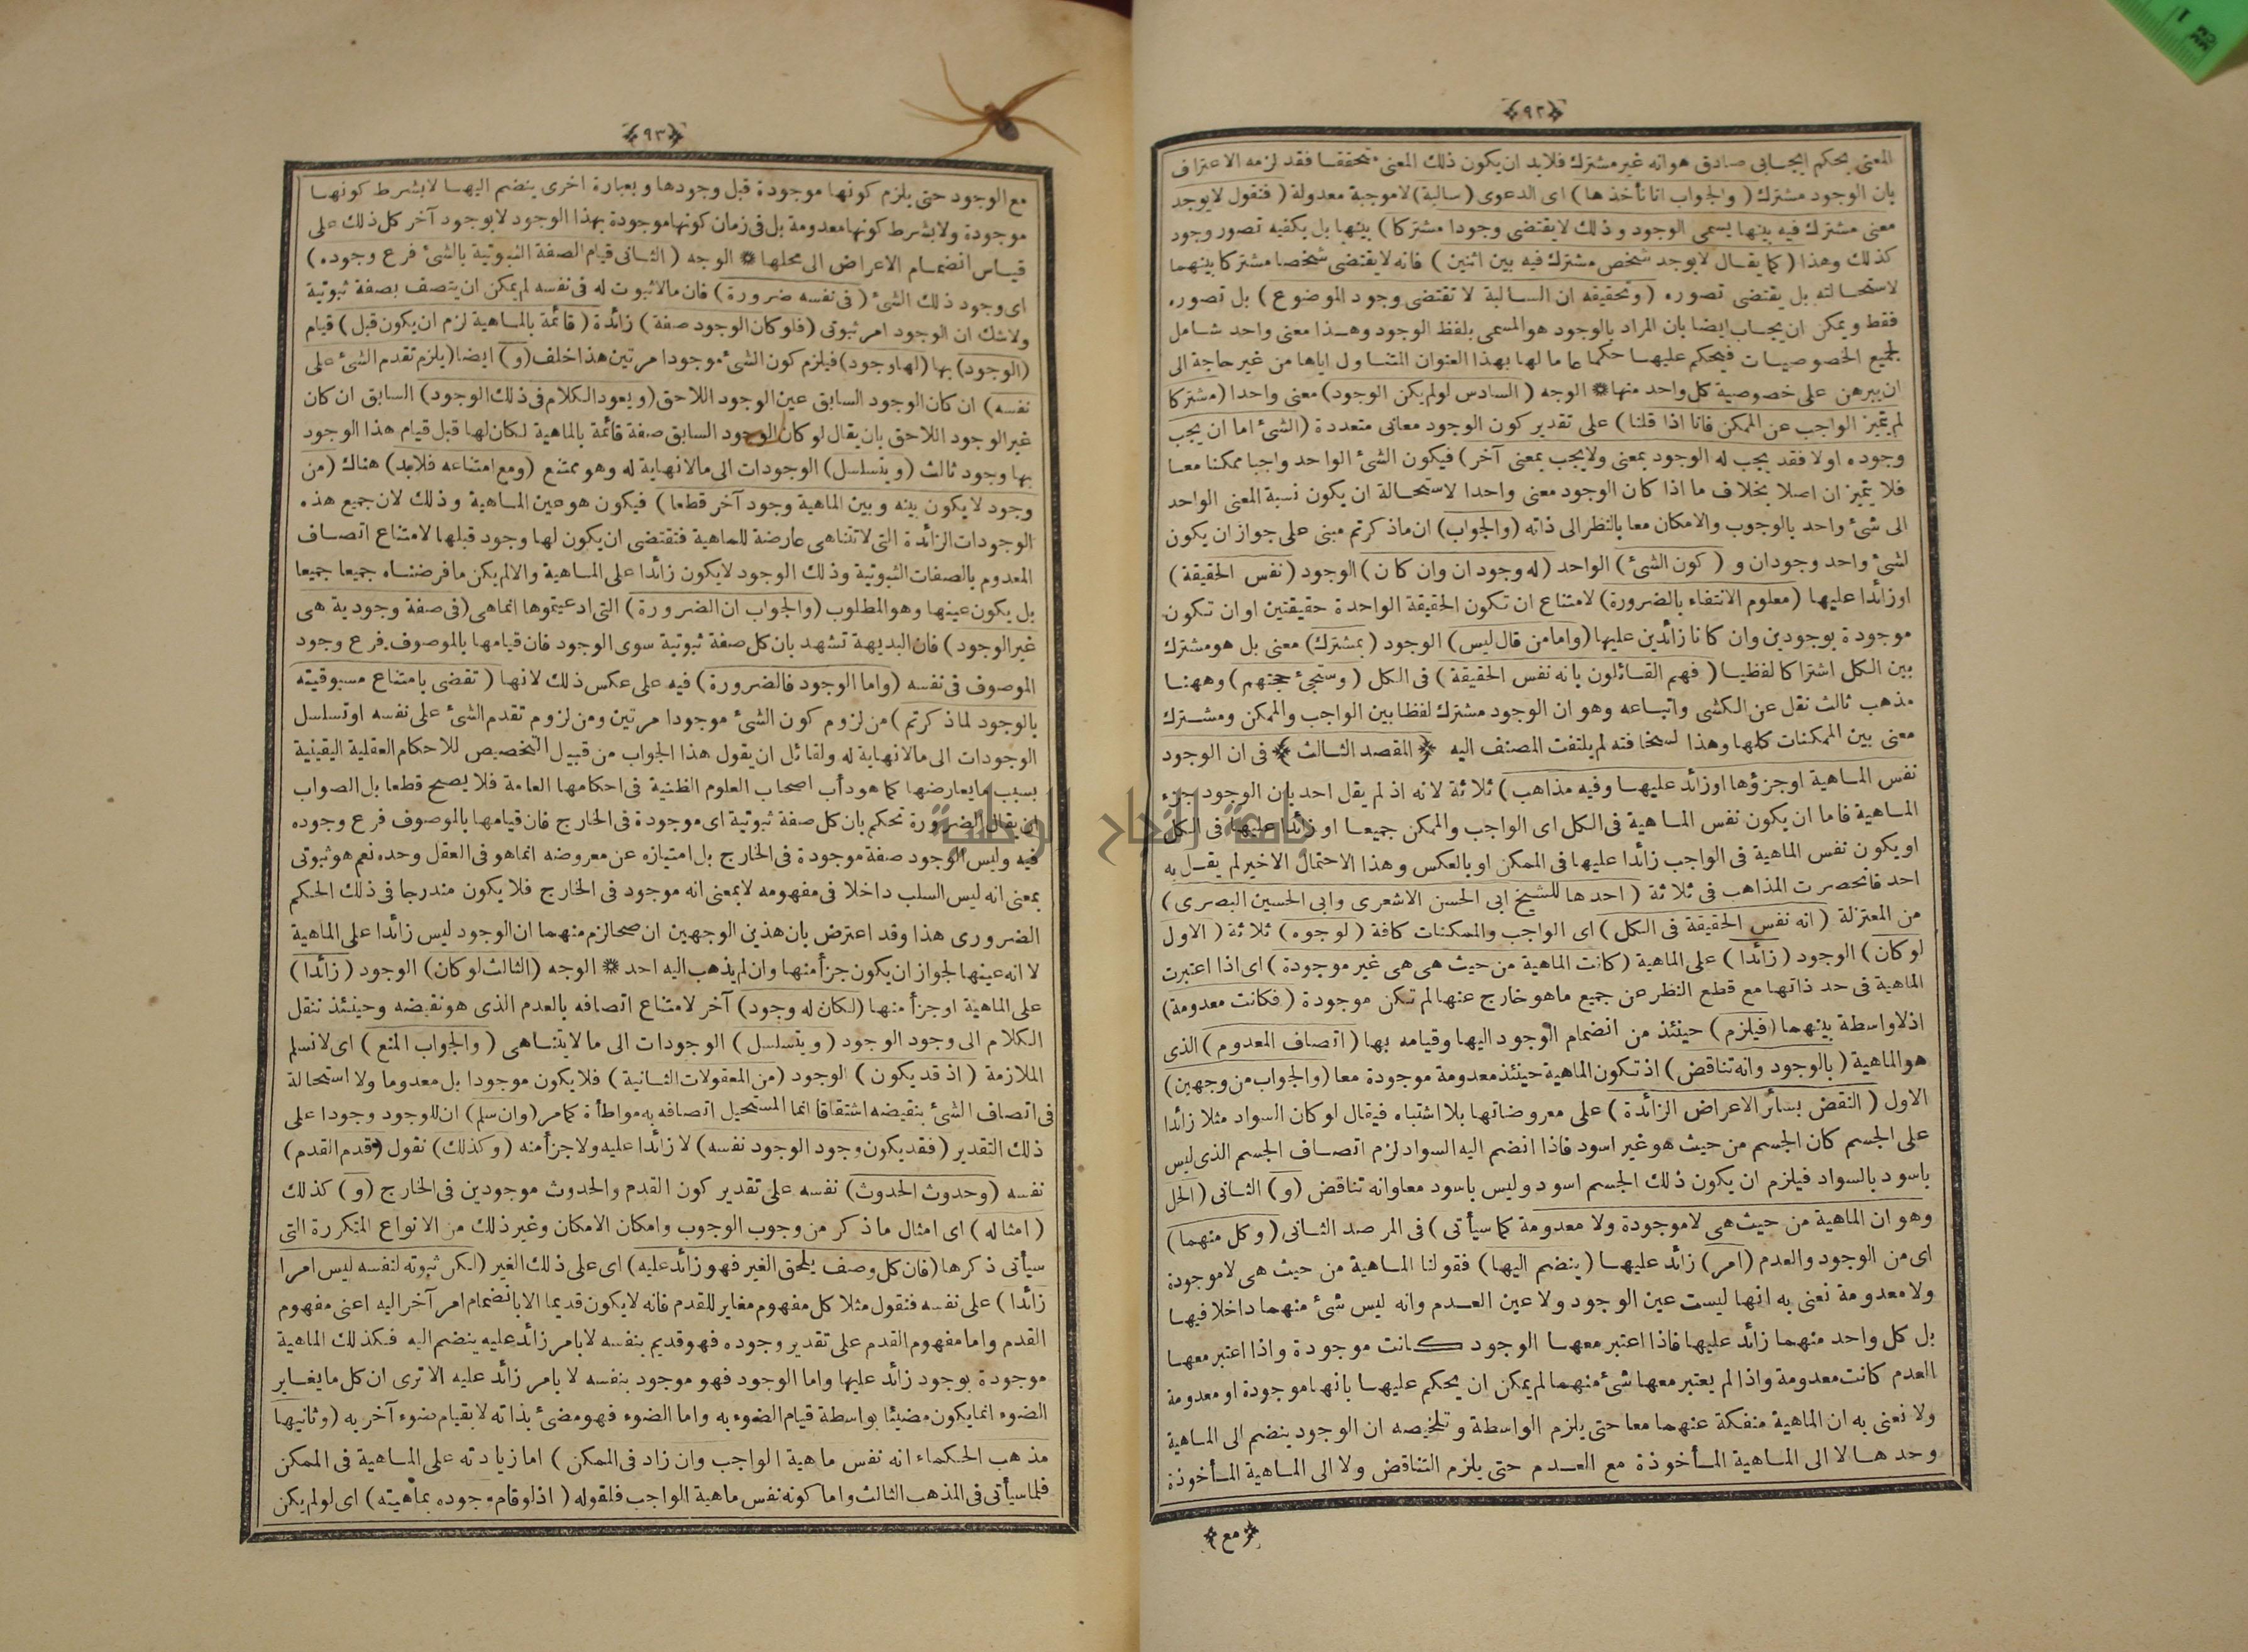 ﴿٩٢﴾
المعنى بحكم ايجابى صادق هوانه غير مشترك فلابد ان يكون ذلك المعنى متحققا فقد لزمه الاعتراف
بان الوجود مشترك ( والجواب انا نأخذها ) اى الدعوى ( سالبة ) لاموجبة معدولة ( فنقول لايوجد
معنى مشترك فيه بينها يسمى الوجود وذلك لايقتضى وجودا مشتركا ) بينها بل يكفيه تصور وجود
كذلك وهذا ( كما يقال لايوجد شخص مشترك فيه بين اثنين ) فانه لايقتضى شخصا مشتركا بينهما
لاستحالته بل يقتضى تصوره ( وتحقيقه ان السالبة لا تقتضى وجود الموضوع ) بل تصوره
فقط ويمكن ان يجاب ايضا بان المراد بالوجود هو المسمى بلفظ الوجود وهذا معنى واحد شامل
لجميع الخصوصيات فيحكم عليها حكما عاما لها بهذا العنوان المتناول اياها من غير حاجة الى
ان يبرهن على خصوصية كل واحد منها ❋ الوجه ( السادس لولم يكن الوجود ) معنى واحدا ( مشتركا
لم يتميز الواجب عن الممكن فانا اذا قلنا ) على تقدير كون الوجود معانى متعددة ( الشئ اما ان يجب
وجوده اولا فقد يجب له الوجود بمعنى ولايجب بمعنى آخر ) فيكون الشئ الواحد واجبا ممكنا معا
فلا يتميز ان اصلا بخلاف ما اذا كان الوجود معنى واحدا لاستحالة ان يكون نسبة المعنى الواحد
الى شئ واحد بالوجوب والامكان معا بالنظر الى ذاته ( والجواب ) ان ماذكرتم مبنى على جواز ان يكون
لشئ واحد وجودان و ( كون الشئ ) الواحد ( له وجودان وان كان ) الوجود ( نفس الحقيقة )
اوزائدا عليها ( معلوم الانتفاء بالضرورة ) لامتناع ان تكون الحقيقة الواحدة حقيقتين او ان تكون
موجودة بوجودين وان كانا زائدين عليها ( وامامن قال ليس ) الوجود ( بمشترك ) معنى بل هو مشترك
بين الكل اشتراكا لفظيا ( فهم القائلون بانه نفس الحقيقة ) فى الكل ( وستجئ حجتهم ) وههنا
مذهب ثالث نقل عن الكشى واتباعه وهو ان الوجود مشترك لفظا بين الواجب والممكن ومشترك
معنى بين الممكنات كلها وهذا لسخافته لم يلتفت المصنف اليه ﴿ المقصد الثالث ﴾ فى ان الوجود
نفس الماهية اوجزؤها اوزائد عليها وفيه مذاهب ) ثلاثة لانه اذ لم يقل احد بان الوجود جزء
الماهية فاما ان يكون نفس الماهية فى الكل اى الواجب والممكن جميعا او زائدا عليها فى الكل
او يكون نفس الماهية فى الواجب زائدا عليها فى الممكن او بالعكس وهذا الاحتمال الاخير لم يقل به
احد فانحصرت المذاهب فى ثلاثة ( احدها للشيخ ابى الحسن الاشعرى وابى الحسين البصرى )
من المعتزلة ( انه نفس الحقيقة فى الكل ) اى الواجب والممكنات كافة ( لوجوه ) ثلاثة ( الاول
لوكان ) الوجود ( زائدا ) على الماهية ( كانت الماهية من حيث هى هى غير موجودة ) اى اذا اعتبرت
الماهية فى حد ذاتها مع قطع النظر عن جميع ماهو خارج عنها لم تكن موجودة ( فكانت معدومة )
اذلاواسطة بينهما ( فيلزم ) حينئذ من انضمام الوجود اليها وقيامه بها ( اتصاف المعدوم ) الذى
هو الماهية ( بالوجود وانه تناقض ) اذ تكون الماهية حينئذ معدومة موجودة معا ( والجواب من وجهين )
الاول ( النقض بسائر الاعراض الزائدة ) على معروضاتها بلا اشتباه فيقال لوكان السواد مثلا زائدا
على الجسم كان الجسم من حيث هو غير اسود فاذا انضم اليه السواد لزم اتصاف الجسم الذى ليس
باسود بالسواد فيلزم ان يكون ذلك الجسم اسود وليس باسود معا وانه تناقض ( و ) الثانى ( الحل
وهو ان الماهية من حيث هى لاموجودة ولا معدومة كما سيأتى ) فى المرصد الثانى ( وكل منهما )
اى من الوجود والعدم ( امر ) زائد عليها ( ينضم اليها ) فقولنا الماهية من حيث هى لاموجودة
ولا معدومة نعنى به انها ليست عين الوجود ولا عين العدم وانه ليس شئ منهما داخلا فيها
بل كل واحد منهما زائد عليها فاذا اعتبر معها الوجود كانت موجودة واذا اعتبر معها
العدم كانت معدومة واذا لم يعتبر معها شئ منهما لم يمكن ان يحكم عليها بانها موجودة او معدومة
ولا نعنى به ان الماهية منفكة عنهما معا حتى يلزم الواسطة وتلخيصه ان الوجود ينضم الى الماهية
وحدها لا الى الماهية المأخوذة مع العدم حتى يلزم التناقض ولا الى الماهية المأخوذة
﴿ مع ﴾
﴿٩٣﴾
مع الوجود حتى يلزم كونها موجودة قبل وجودها وبعبارة اخرى ينضم اليها لابشرط كونها
موجودة ولابشرط كونها معدومة بل فى زمان كونها موجودة بهذا الوجود لابوجود آخر كل ذلك على
قياس انضمام الاعراض الى محلها ❋ الوجه ( الثانى قيام الصفة الثبوتية بالشئ فرع وجوده )
اى وجود ذلك الشئ ( فى نفسه ضرورة ) فان مالاثبوت له فى نفسه لم يمكن ان يتصف بصفة ثبوتية
ولاشك ان الوجود امر ثبوتى ( فلوكان الوجود صفة ) زائدة ( قائمة بالماهية لزم ان يكون قبل ) قيام
( الوجود ) بها ( لها وجود ) فيلزم كون الشئ موجودا مرتين هذا خلف ( و ) ايضا ( يلزم تقدم الشئ على
نفسه ) ان كان الوجود السابق عين الوجود اللاحق ( ويعود الكلام فى ذلك الوجود ) السابق ان كان
غير الوجود اللاحق بان يقال لوكان الوجود السابق صفة قائمة بالماهية لكان لها قبل قيام هذا الوجود
بها وجود ثالث ( ويتسلسل ) الوجودات الى مالانهاية له وهو ممتنع ( ومع امتناعه فلابد ) هناك ( من
وجود لا يكون بينه وبين الماهية وجود آخر قطعا ) فيكون هو عين الماهية وذلك لان جميع هذه
الوجودات الزائدة التى لاتتناهى عارضة للماهية فتقتضى ان يكون لها وجود قبلها لامتناع اتصاف
المعدوم بالصفات الثبوتية وذلك الوجود لايكون زائدا على الماهية والا لم يكن مافرضناه جميعا جميعا
بل يكون عينها وهو المطلوب ( والجواب ان الضرورة ) التى ادعيتموها انماهى ( فى صفة وجودية هى
غير الوجود ) فان البديهة تشهد بان كل صفة ثبوتية سوى الوجود فان قيامها بالموصوف فرع وجود
الموصوف فى نفسه ( واما الوجود فالضرورة ) فيه على عكس ذلك لانها ( تقضى بامتناع مسبوقيته
بالوجود لما ذكرتم ) من لزوم كون الشئ موجودا مرتين ومن لزوم تقدم الشئ على نفسه اوتسلسل
الوجودات الى مالانهاية له ولقائل ان يقول هذا الجواب من قبيل التخصيص للاحكام العقلية اليقينية
بسبب مايعارضها كما هو دأب اصحاب العلوم الظنية فى احكامها العامة فلا يصح قطعا بل الصواب
ان يقال الضرورة تحكم بان كل صفة ثبوتية اى موجودة فى الخارج فان قيامها بالموصوف فرع وجوده
فيه وليس الوجود صفة موجودة فى الخارج بل امتيازه عن معروضه انماهو فى العقل وحده نعم هو ثبوتى
بمعنى انه ليس السلب داخلا فى مفهومه لابمعنى انه موجود فى الخارج فلا يكون مندرجا فى ذلك الحكم
الضرورى هذا وقد اعترض بان هذين الوجهين ان صحا لزم منهما ان الوجود ليس زائدا على الماهية
لا انه عينها لجواز ان يكون جزأ منها وان لم يذهب اليه احد ❋ الوجه ( الثالث لوكان ) الوجود ( زائدا )
على الماهية اوجزأ منها ( لكان له وجود ) آخر لامتناع اتصافه بالعدم الذى هو نقيضه وحينئذ ننقل
الكلام الى وجود الوجود ( ويتسلسل ) الوجودات الى ما لايتناهى ( والجواب المنع ) اى لانسلم
الملازمة ( اذ قد يكون ) الوجود ( من المعقولات الثانية ) فلا يكون موجودا بل معدوما ولا استحالة
فى اتصاف الشئ بنقيضه اشتقاقا انما المستحيل اتصافه به مواطأة كمامر ( وان سلم ) ان للوجود وجودا على
ذلك التقدير ( فقد يكون وجود الوجود نفسه ) لا زائدا عليه ولاجزأ منه ( وكذلك ) نقول ( قدم القدم )
نفسه ( وحدوث الحدوث ) نفسه على تقدير كون القدم والحدوث موجودين فى الخارج ( و ) كذلك
( امثاله ) اى امثال ماذكر من وجوب الوجوب وامكان الامكان وغير ذلك من الانواع المتكررة التى
سيأتى ذكرها ( فان كل وصف يلحق الغير فهو زائد عليه ) اى على ذلك الغير ( لكن ثبوته لنفسه ليس امرا
زائدا ) على نفسه فنقول مثلا كل مفهوم مغاير للقدم فانه لايكون قديما الا بانضمام امر آخر اليه اعنى مفهوم
القدم واما مفهوم القدم على تقدير وجوده فهو قديم بنفسه لابامر زائد عليه ينضم اليه فكذلك الماهية
موجودة بوجود زائد عليها واما الوجود فهو موجود بنفسه لا بامر زائد عليه الا ترى ان كل مايغاير
الضوء انمايكون مضيئا بواسطة قيام الضوء به واما الضوء فهو مضئ بذاته لابقيام ضوء آخر به ( وثانيها
مذهب الحكماء انه نفس ماهية الواجب وان زاد فى الممكن ) اما زيادته على الماهية فى الممكن
فلما سيأتى فى المذهب الثالث واما كونه نفس ماهية الواجب فلقوله ( اذلوقام وجوده بماهيته ) اى لولم يكن
جامعة النجاح الوطنية
1 CM
MM